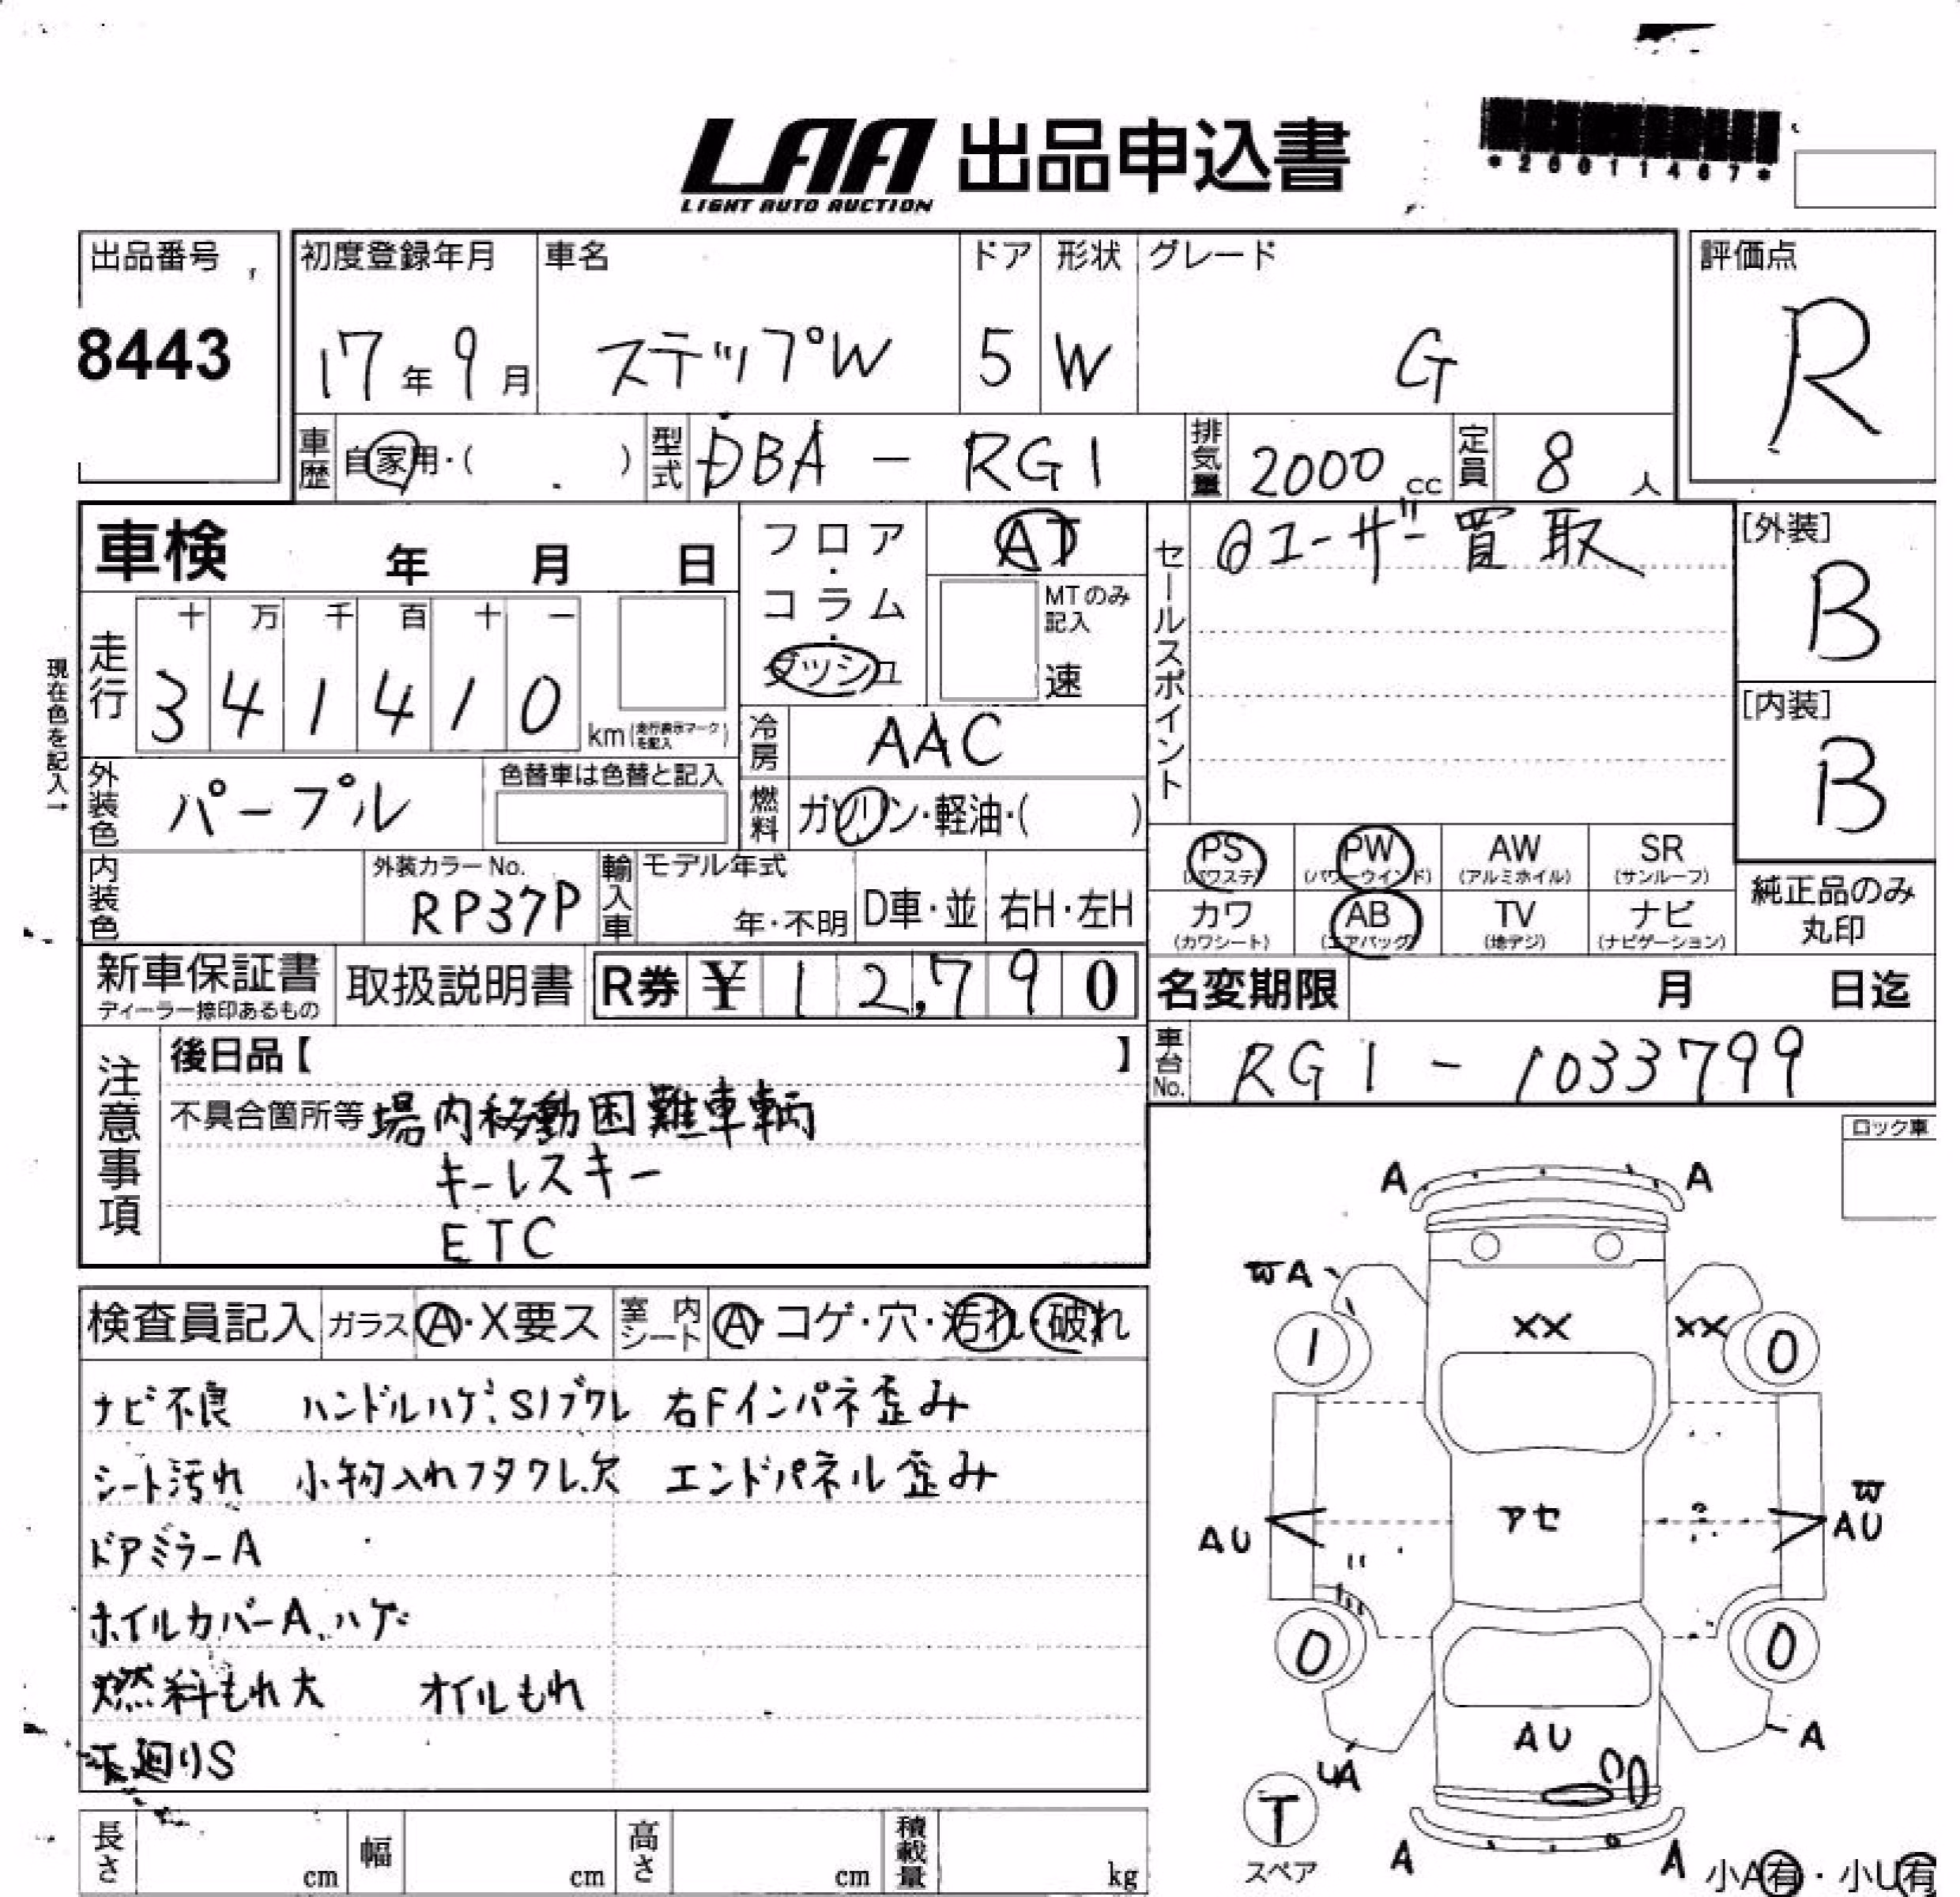 LAA 出品申込書
LIGHT AUTO AUCTION
*26011467*
出品番号 初度登録年月 車名 ドア 形状 グレード 評価点
8443 17年9月 ステップW 5 W G R
車歴 自家用・( ) 型式 DBA - RG1 排気量 2000cc 定員 8人
車検 年 月 日 フロア・コラム・ダッシュ AT
MTのみ記入 速
セールスポイント @ユーザー買取
[外装] B
[内装] B
現在色を記入→
走行 十 万 千 百 十 一
3 4 1 4 1 0 km(走行表示マークを記入)
冷房 AAC
外装色 パープル 色替車は色替と記入
燃料 ガソリン・軽油・( )
PS PW AW SR
(パワステ) (パワーウインド) (アルミホイル) (サンルーフ)
内装色 外装カラーNo. RP37P 輸入車 モデル年式 年・不明 D車・並 右H・左H
カワ AB TV ナビ
(カワシート) (エアバッグ) (地デジ) (ナビゲーション)
純正品のみ
丸印
新車保証書 取扱説明書 R券 ¥ 1 2,7 9 0 名変期限 月 日迄
ディーラー捺印あるもの
注意事項 後日品【 】
車台No. RG1 - 1033799
不具合箇所等 場内移動困難車輌
キーレスキー
ETC
ロック車
検査員記入 ガラス A・X要ス 室内シート A・コゲ・穴・汚れ・破れ
ナビ不良 ハンドルハゲ、Sノブワレ 右Fインパネ歪み
シート汚れ 小物入れフタワレ欠 エンドパネル歪み
ドアミラーA
ホイルカバーA、ハゲ
燃料もれ大 オイルもれ
下廻りS
A A
WA
XX XX
1 0
アセ
AU
W
AU
0 0
AU
UA
A
T
スペア
A A
小A有・小U有
長さ cm 幅 cm 高さ cm 積載量 kg